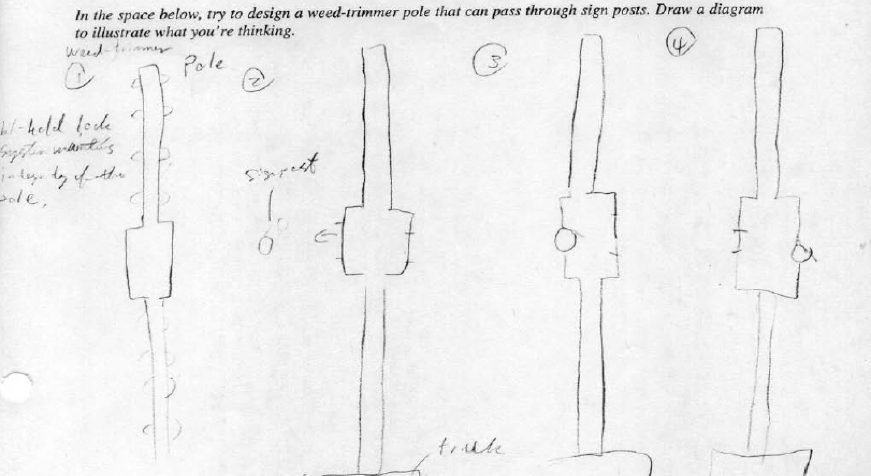 In the space below, try to design a weed-trimmer pole that can pass through sign posts. Draw a diagram
to illustrate what you're thinking.
Weed-trimmer
Pole
1
2
3
4
-hold lock
System
of the
pole.
signpost
truck